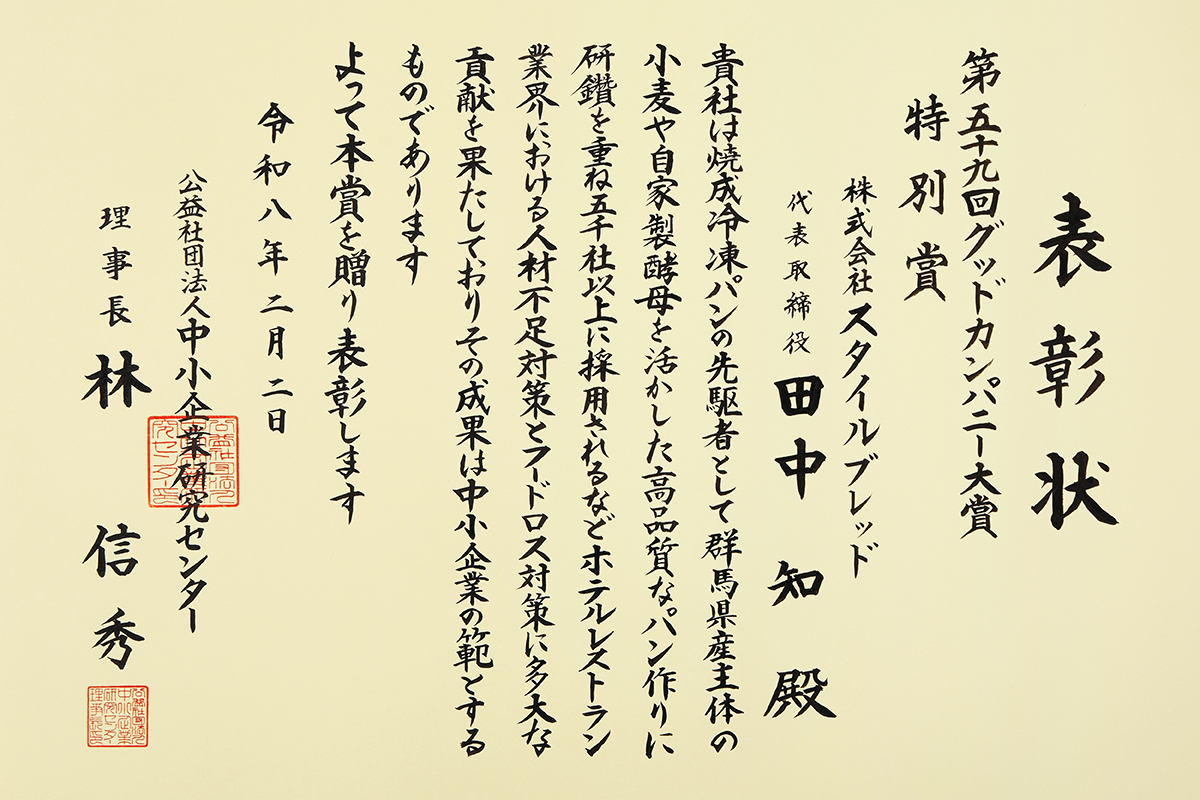 表彰状
第五十九回グッドカンパニー大賞
特別賞
株式会社スタイルブレッド
代表取締役 田中 知 殿
貴社は焼成冷凍パンの先駆者として群馬県産主体の
小麦や自家製酵母を活かした高品質なパン作りに
研鑽を重ね五千社以上に採用されるなどホテルレストラン
業界における人材不足対策とフードロス対策に多大な
貢献を果たしておりその成果は中小企業の範とする
ものであります
よって本賞を贈り表彰します
令和八年二月二日
公益社団法人中小企業研究センター
理事長 林 信秀